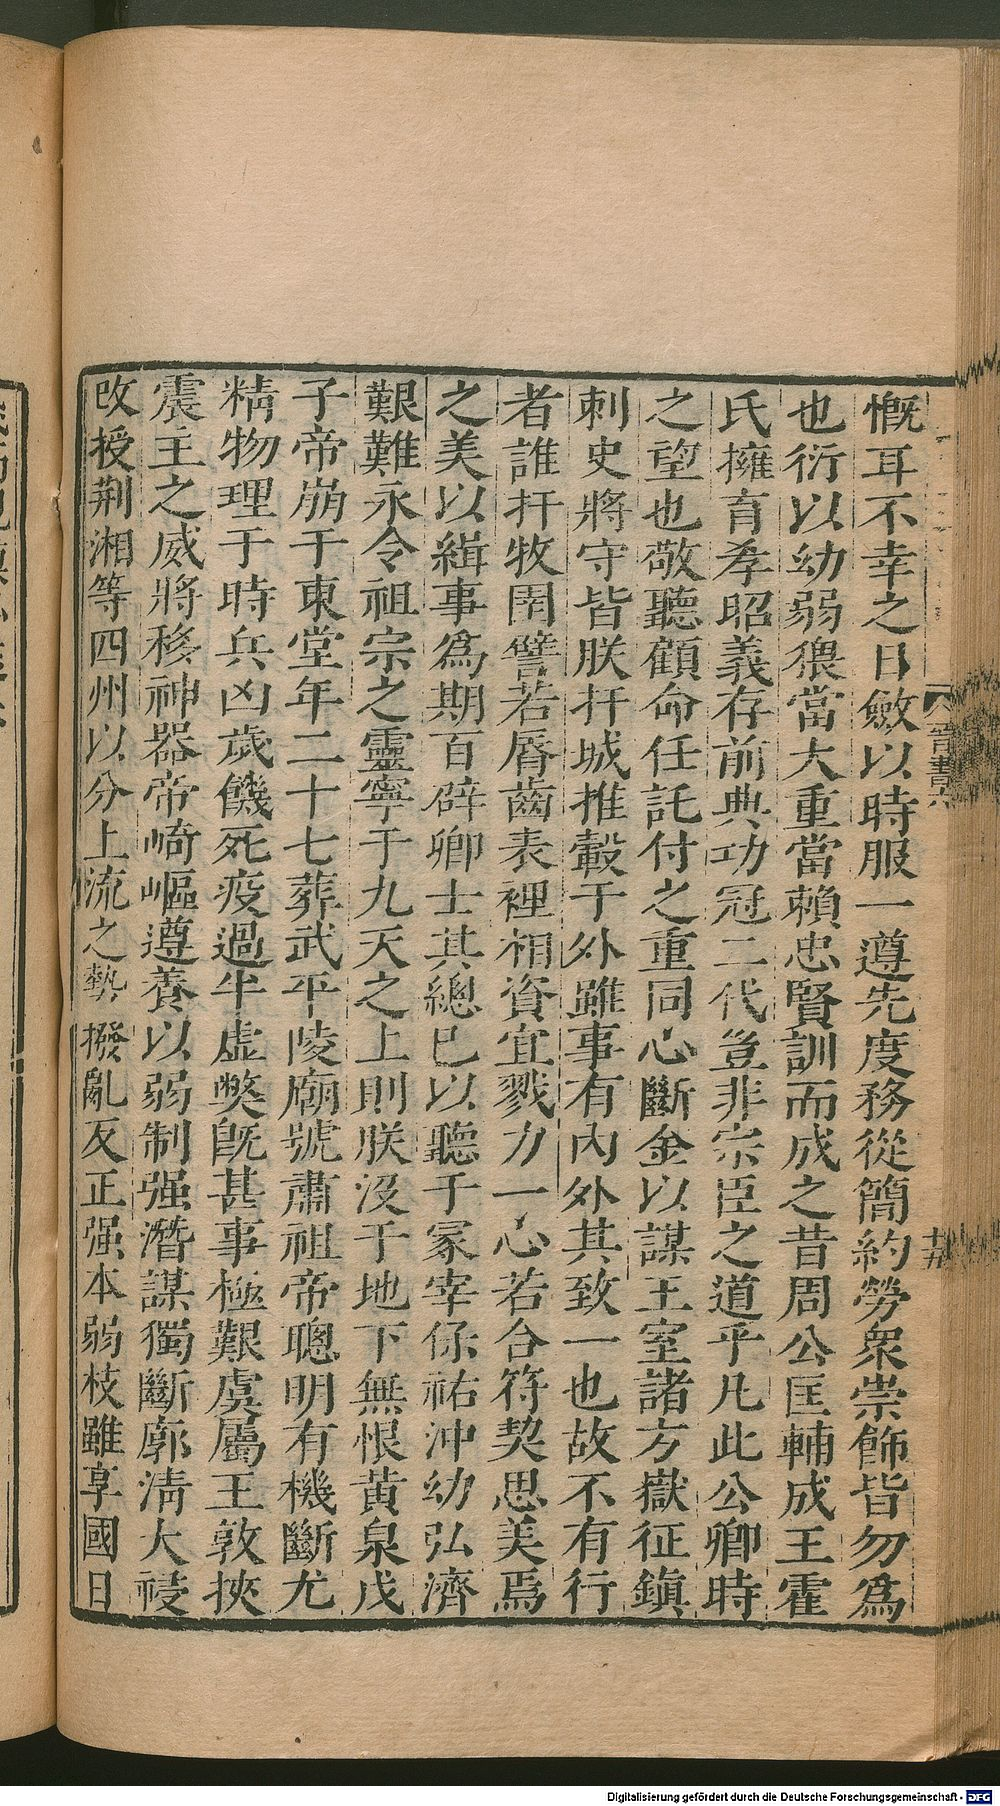 慨耳不幸之日斂以時服一遵先度務從簡約勞衆崇飾皆勿爲
也衍以幼弱猥當大重當賴忠賢訓而成之昔周公匡輔成王霍
氏擁育孝昭義存前典功冠二代豈非宗臣之道乎凡此公卿時
之望也敬聽顧命任託付之重同心斷金以謀王室諸方嶽征鎮
刺史將守皆朕扞城推轂于外雖事有內外其致一也故不有行
者誰扞牧圉譬若脣齒表裡相資宜戮力一心若合符契思美焉
之美以緝事爲期百辟卿士其總已以聽于冢宰保祐沖幼弘濟
艱難永令祖宗之靈寧于九天之上則朕沒于地下無恨黃泉戊
子帝崩于東堂年二十七葬武平陵廟號肅祖帝聰明有機斷尤
精物理于時兵凶歲饑死疫過半虛獘旣甚事極艱虞屬王敦挾
震主之威將移神器帝崎嶇遵養以弱制强潛謀獨斷廓清大祲
改授荆湘等四州以分上流之勢撥亂反正强本弱枝雖享國日
晉書六
十五
Digitalisierung gefördert durch die Deutsche Forschungsgemeinschaft - DFG